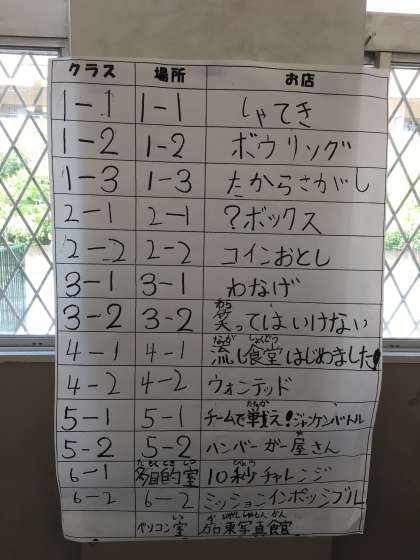 クラス 場所 お店
1-1 1-1 しゃてき
1-2 1-2 ボウリング
1-3 1-3 たからさがし
2-1 2-1 ?ボックス
2-2 2-2 コインおとし
3-1 3-1 わなげ
わら
3-2 3-2 笑ってはいけない
なが しょくどう
4-1 4-1 流し食堂はじめました!
4-2 4-2 ウォンテッド
たたか
5-1 5-1 チームで戦え!ジャンケンバトル
や
5-2 5-2 ハンバーガー屋さん
たもくてきしつ びょう
6-1 多目的室 10秒チャレンジ
6-2 6-2 ミッションインポッシブル
しつ
パソコン室 東写真館